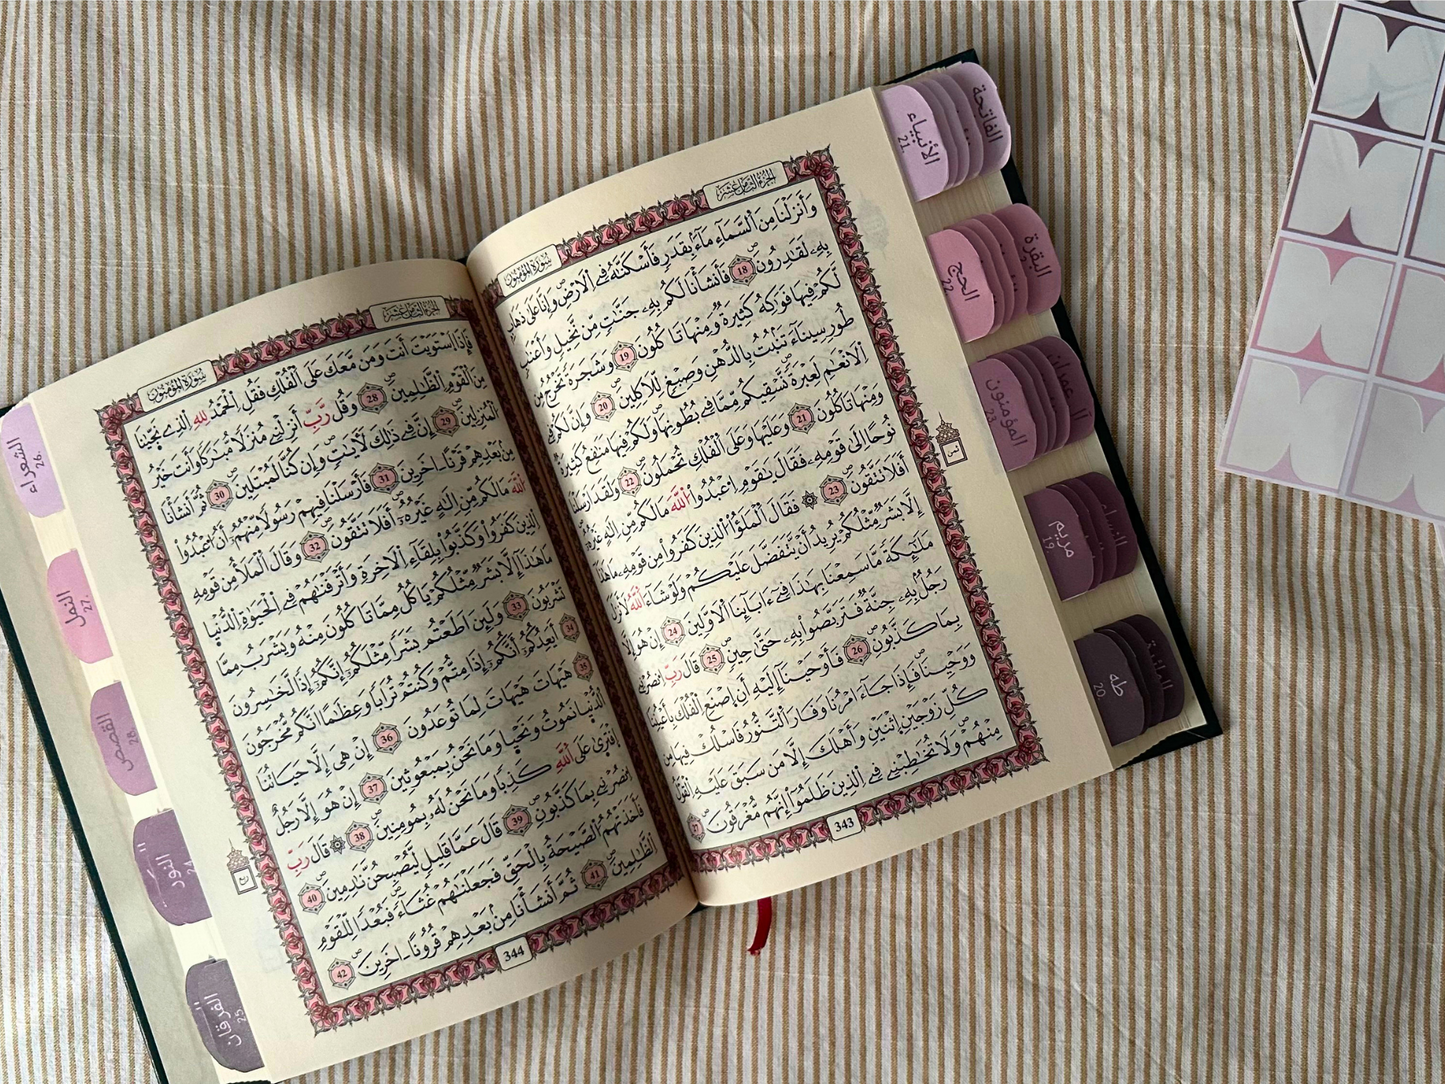 الجزء الثامن عشر
سورة المؤمنون
وَأَنزَلْنَا مِنَ اَ۬لسَّمَآءِ مَآءَۢ بِقَدَرٖ فَأَسْكَنَّٰهُ فِے اِ۬لَارْضِۖ وَإِنَّا عَلَيٰ ذَهَابِۢ
بِهِۦ لَقَٰدِرُونَۖ 18 فَأَنشَأْنَا لَكُم بِهِۦ جَنَّٰتٖ مِّن نَّخِيلٖ وَأَعْنَٰبٖ
لَّكُمْ فِيهَا فَوَٰكِهُ كَثِيرَةٞ وَمِنْهَا تَاكُلُونَ 19 وَشَجَرَةٗ تَخْرُجُ مِن
طُورِ سِينَآءَ تَنۢبُتُ بِالدُّهْنِ وَصِبْغٖ لِّلَاكِلِينَۖ 20 وَإِنَّ لَكُمْ فِے
اِ۬لَانْعَٰمِ لَعِبْرَةٗۖ نَّسْقِيكُم مِّمَّا فِے بُطُونِهَا وَلَكُمْ فِيهَا مَنَٰفِعُ كَثِيرَةٞ
وَمِنْهَا تَاكُلُونَ 21 وَعَلَيْهَا وَعَلَي اَ۬لْفُلْكِ تُحْمَلُونَۖ 22 وَلَقَدَ اَرْسَلْنَا
نُوحاً اِلَيٰ قَوْمِهِۦ فَقَالَ يَٰقَوْمِ اِ۟عْبُدُواْ اُ۬للَّهَ مَا لَكُم مِّنِ اِلَٰهٍ غَيْرُهُۥٓ
أَفَلَا تَتَّقُونَۖ 23 ۞ فَقَالَ اَ۬لْمَلَؤُاْ اُ۬لذِينَ كَفَرُواْ مِن قَوْمِهِۦ مَا هَٰذَآ
إِلَّا بَشَرٞ مِّثْلُكُمْ يُرِيدُ أَنْ يَّتَفَضَّلَ عَلَيْكُمْ وَلَوْ شَآءَ اَ۬للَّهُ لَأَنزَلَ
مَلَٰٓئِكَةٗ مَّا سَمِعْنَا بِهَٰذَا فِےٓ ءَابَآئِنَا اَ۬لَاوَّلِينَۖ 24 إِنْ هُوَ إِلَّا
رَجُلُۢ بِهِۦ جِنَّةٞ فَتَرَبَّصُواْ بِهِۦ حَتَّيٰ حِينٖۖ 25 قَالَ رَبِّ اِ۟نصُرْنِے
بِمَا كَذَّبُونِۖ 26 فَأَوْحَيْنَآ إِلَيْهِ أَنِ اِ۪صْنَعِ اِ۬لْفُلْكَ بِأَعْيُنِنَا
وَوَحْيِنَاۖ فَإِذَا جَآءَ امْرُنَا وَفَارَ اَ۬لتَّنُّورُ فَاسْلُكْ فِيهَا مِن
كُلِّ زَوْجَيْنِ اِ۪ثْنَيْنِ وَأَهْلَكَ إِلَّا مَن سَبَقَ عَلَيْهِ اِ۬لْقَوْلُ
مِنْهُمْۖ وَلَا تُخَٰطِبْنِے فِے اِ۬لذِينَ ظَلَمُوٓاْ إِنَّهُم مُّغْرَقُونَۖ 27
ثمن
343
الجزء الثامن عشر
سورة المؤمنون
فَإِذَا اَ۪سْتَوَيْتَ أَنتَ وَمَن مَّعَكَ عَلَي اَ۬لْفُلْكِ فَقُلِ اِ۬لْحَمْدُ لِلهِ اِ۬لذِے نَجَّيٰنَا
مِنَ اَ۬لْقَوْمِ اِ۬لظَّٰلِمِينَۖ 28 وَقُل رَّبِّ أَنزِلْنِے مُنزَلاٗ مُّبَٰرَكاٗ وَأَنتَ خَيْرُ
اُ۬لْمُنزِلِينَۖ 29 إِنَّ فِے ذَٰلِكَ لَأٓيَٰتٖ وَإِن كُنَّا لَمُبْتَلِينَۖ 30 ثُمَّ أَنشَأْنَا
مِنۢ بَعْدِهِمْ قَرْناً اٰخَرِينَ 31 فَأَرْسَلْنَا فِيهِمْ رَسُولاٗ مِّنْهُمُۥٓ أَنُ اُ۟عْبُدُواْ
اُ۬للَّهَ مَا لَكُم مِّنِ اِلَٰهٍ غَيْرُهُۥٓ أَفَلَا تَتَّقُونَۖ 32 وَقَالَ اَ۬لْمَلَأُ مِن قَوْمِهِ
اِ۬لذِينَ كَفَرُواْ وَكَذَّبُواْ بِلِقَآءِ اِ۬لَاخِرَةِ وَأَتْرَفْنَٰهُمْ فِے اِ۬لْحَيَوٰةِ اِ۬لدُّنْي۪ا
مَا هَٰذَآ إِلَّا بَشَرٞ مِّثْلُكُمْ يَاكُلُ مِمَّا تَاكُلُونَ مِنْهُ وَيَشْرَبُ مِمَّا
تَشْرَبُونَۖ 33 وَلَئِنَ اَطَعْتُم بَشَراٗ مِّثْلَكُمُۥٓ إِنَّكُمُۥٓ إِذاٗ لَّخَٰسِرُونَ
34 أَيَعِدُكُمُۥٓ أَنَّكُمُۥٓ إِذَا مِتُّمْ وَكُنتُمْ تُرَاباٗ وَعِظَٰماً اَنَّكُم مُّخْرَجُونَ
35 هَيْهَاتَ هَيْهَاتَ لِمَا تُوعَدُونَۖ 36 إِنْ هِيَ إِلَّا حَيَاتُنَا
اَ۬لدُّنْي۪ا نَمُوتُ وَنَحْي۪ا وَمَا نَحْنُ بِمَبْعُوثِينَ 37 إِنْ هُوَ إِلَّا رَجُلٌ
اِ۪فْتَر۪يٰ عَلَي اَ۬للَّهِ كَذِباٗ وَمَا نَحْنُ لَهُۥ بِمُومِنِينَۖ 38 ۞ قَالَ رَبِّ
اِ۟نصُرْنِے بِمَا كَذَّبُونِۖ 39 قَالَ عَمَّا قَلِيلٖ لَّيُصْبِحُنَّ نَٰدِمِينَۖ 40
فَأَخَذَتْهُمُ اُ۬لصَّيْحَةُ بِالْحَقِّ فَجَعَلْنَٰهُمْ غُثَآءٗۖ فَبُعْداٗ لِّلْقَوْمِ
اِ۬لظَّٰلِمِينَۖ 41 ثُمَّ أَنشَأْنَا مِنۢ بَعْدِهِمْ قُرُوناً اٰخَرِينَۖ 42
ربع
344
الفاتحة
الأنبياء
21.
البقرة
الحج
22
آل عمران
المؤمنون
23
النساء
مريم
19
المائدة
طه
20
الشعراء
26.
النمل
27.
القصص
28.
النور
24
الفرقان
25.